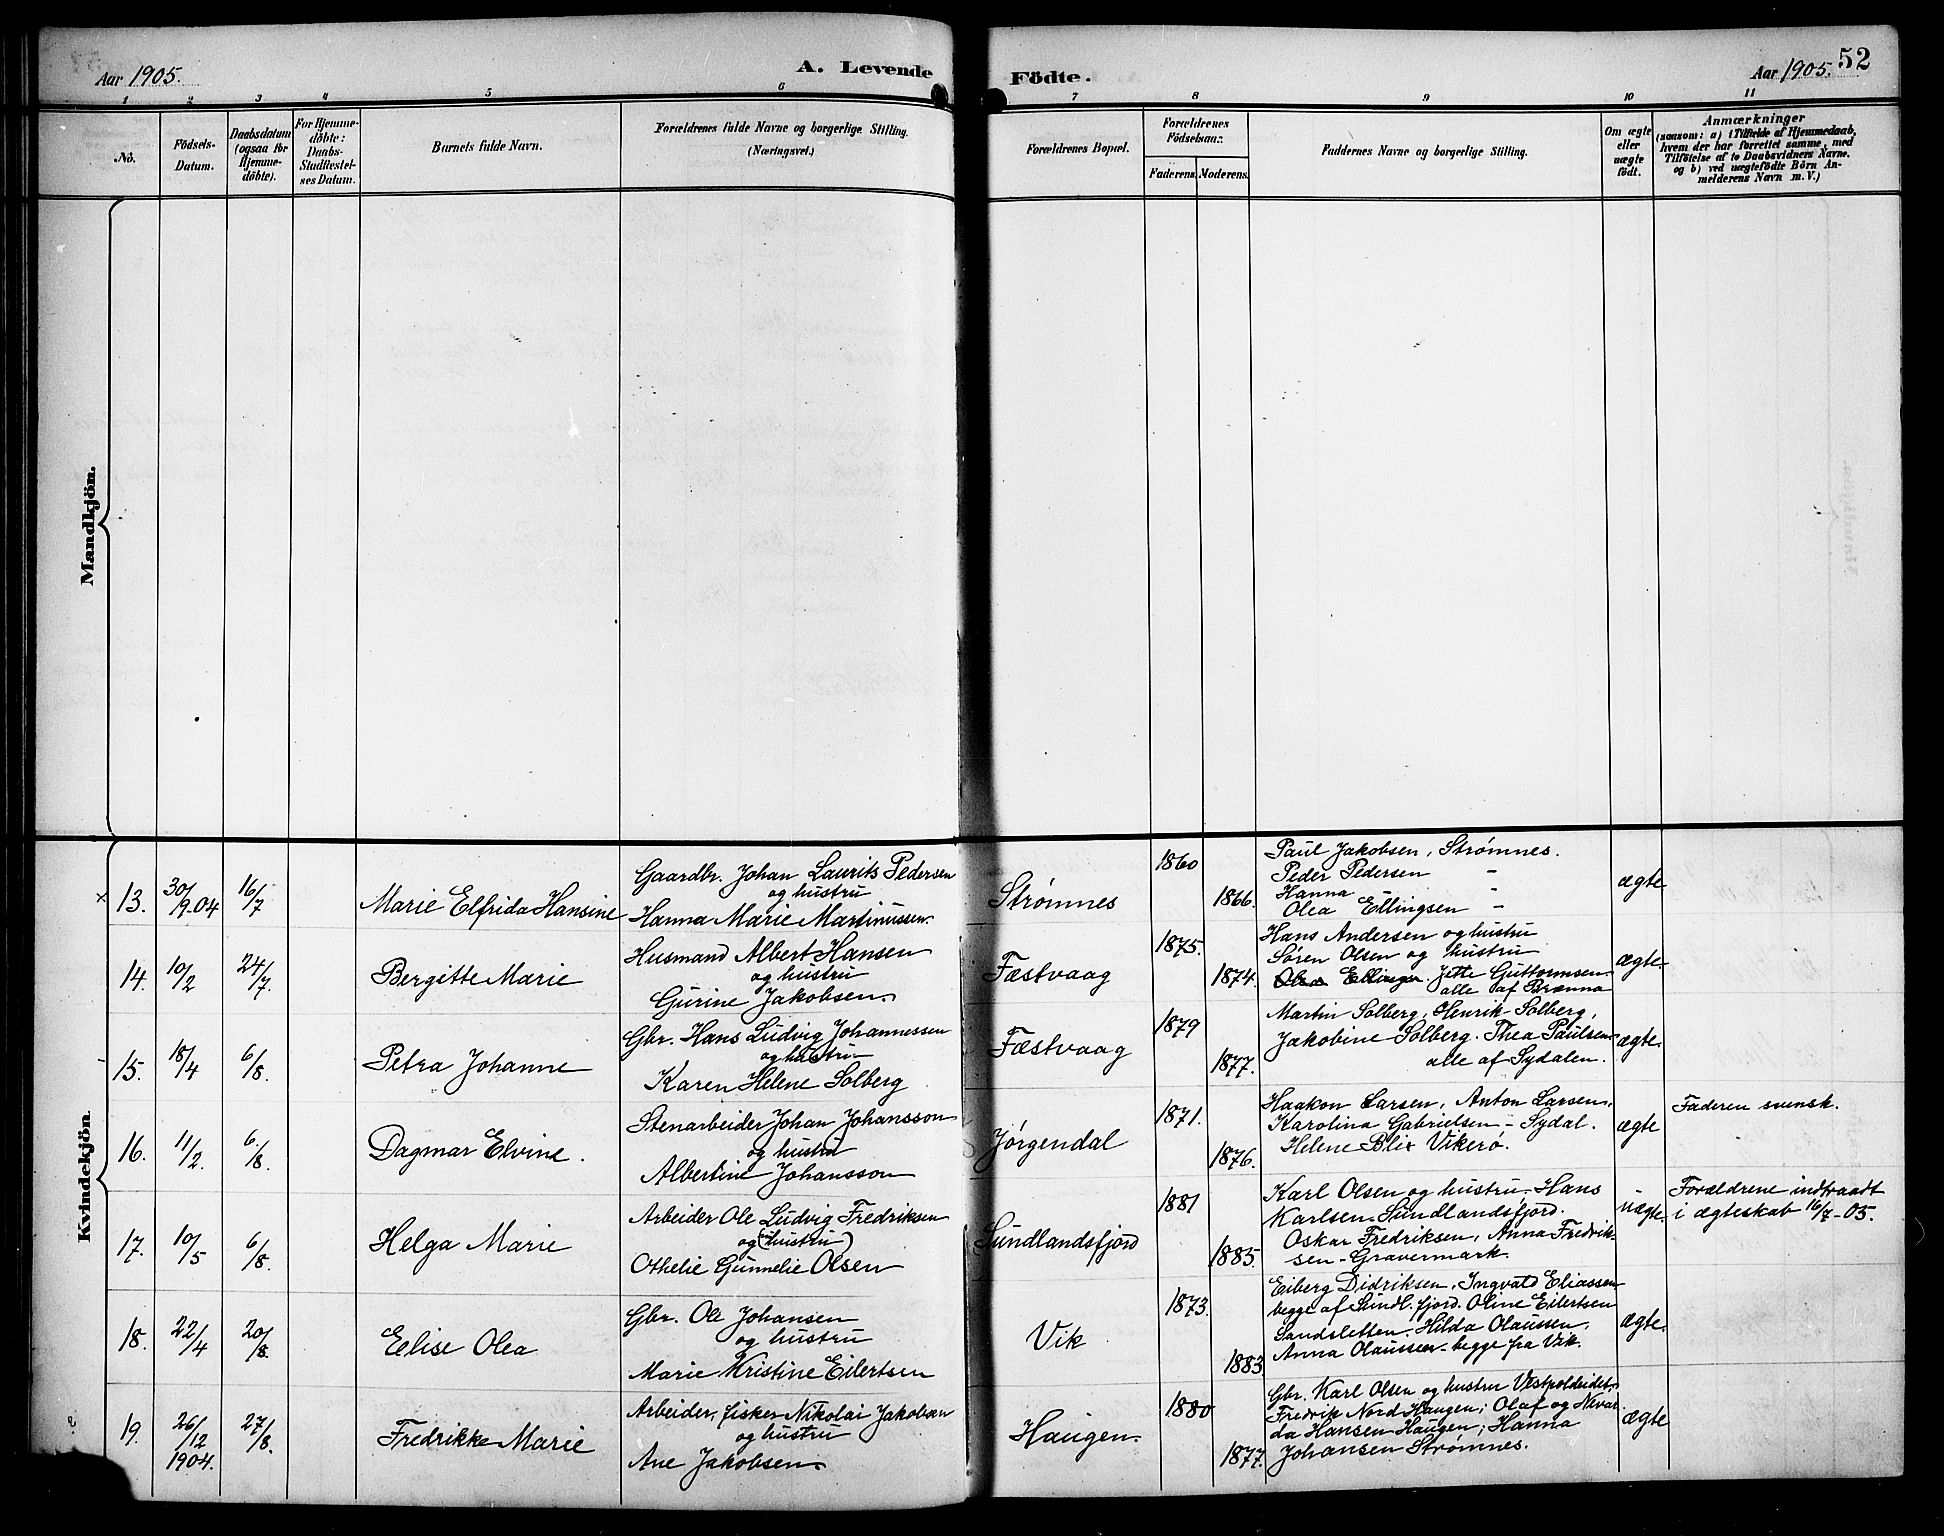 Aar 1905.
A. Levende
Födte.
Aar 1905.
52
1 2 3 4 5 6 7 8 9 10 11
No.
Födsels-
Datum.
Daabsdatum
(ogsaa for
Hjemme-
döbte).
For Hjemme-
döbte:
Daabs-
Stadfæstel-
ses Datum.
Barnets fulde Navn.
Forældrenes fulde Navne og borgerlige Stilling.
(Næringsvei.)
Forældrenes Bopæl.
Forældrenes
Födselsaar:
Faderens.
Moderens.
Faddernes Navne og borgerlige Stilling.
Om ægte
eller
uægte
födt.
Anmærkninger
(saasom: a) i Tilfælde af Hjemmedaab,
hvem der har forrettet samme, med
Tilföielse af to Daabsvidners Navne.
og b) ved uægtefödte Börn An-
melderens Navn m. V.)
Mandkjön.
Kvindekjön
× 13.
30/9-04
16/7
Marie Elfrida Hansine
Gaardbr. Johan Laurits Pedersen
og hustru
Hanna Marie Martinussen.
Strømnes
1860
1866.
Paul Jakobsen, Strømnes.
Peder Pedersen "
Hanna "
Olea Ellingsen "
ægte
14.
10/2
24/7.
Bergitte Marie
Husmand Albert Hansen
og hustru
Gurine Jakobsen.
Fæstvaag
1875.
1874.
Hans Andersen og hustru
Søren Olsen og hustru
Olea Ellinger Jette Guttormsen
alle af Brænna
ægte.
15.
18/4
6/8.
Petra Johanne
Gbr. Hans Ludvig Johannessen
og hustru
Karen Helene Solberg
Fæstvaag
1879
1877.
Martin Solberg, Henrik Solberg,
Jakobine Solberg. Thea Paulsen
alle af Sydalen.
ægte.
16.
11/2.
6/8.
Dagmar Elvine.
Stenarbeider Johan Johansson
og hustru
Albertine Johansson
Jørgendal
1871.
1876.
Haakon Larsen, Anton Larsen,
Karolina Gabrielsen - Sydal.
Helene Blix Vikerø.
ægte
Faderen svensk.
17.
10/5
6/8.
Helga Marie
Arbeider Ole Ludvig Fredriksen
og (hustru)
Othelie Gunnelie Olsen
Sundlandsfjord
1881
1885.
Karl Olsen og hustru. Hans
Karlsen Sundlandsfjord.
Oskar Fredriksen, Anna Fredrik-
sen - Gravermark.
uægte.
Forældrene indtraadt
i ægteskab 16/7-05.
18.
22/4
20/8.
Eelise Olea
Gbr. Ole Johansen
og hustru
Marie Kristine Eilertsen
Vik
1873.
1883
Eiberg Didriksen, Ingvald Eliassen
begge af Sundl. fjord. Oline Eilertsen
Sandsletten. Hilda Olaussen,
Anna Olaussen - begge fra Vik.
ægte.
19.
26/12
1904.
27/8.
Fredrikke Marie
Arbeider, fisker Nikolai Jakobsen
og hustru
Ane Jakobsen
Haugen.
1880
1877.
Gbr. Karl Olsen og hustru Vestpoldeidet.
Fredrik Nord Haugen; Olaf og Nevar
da Hansen Haugen; Hanna
Johansen Strømnes.
ægte